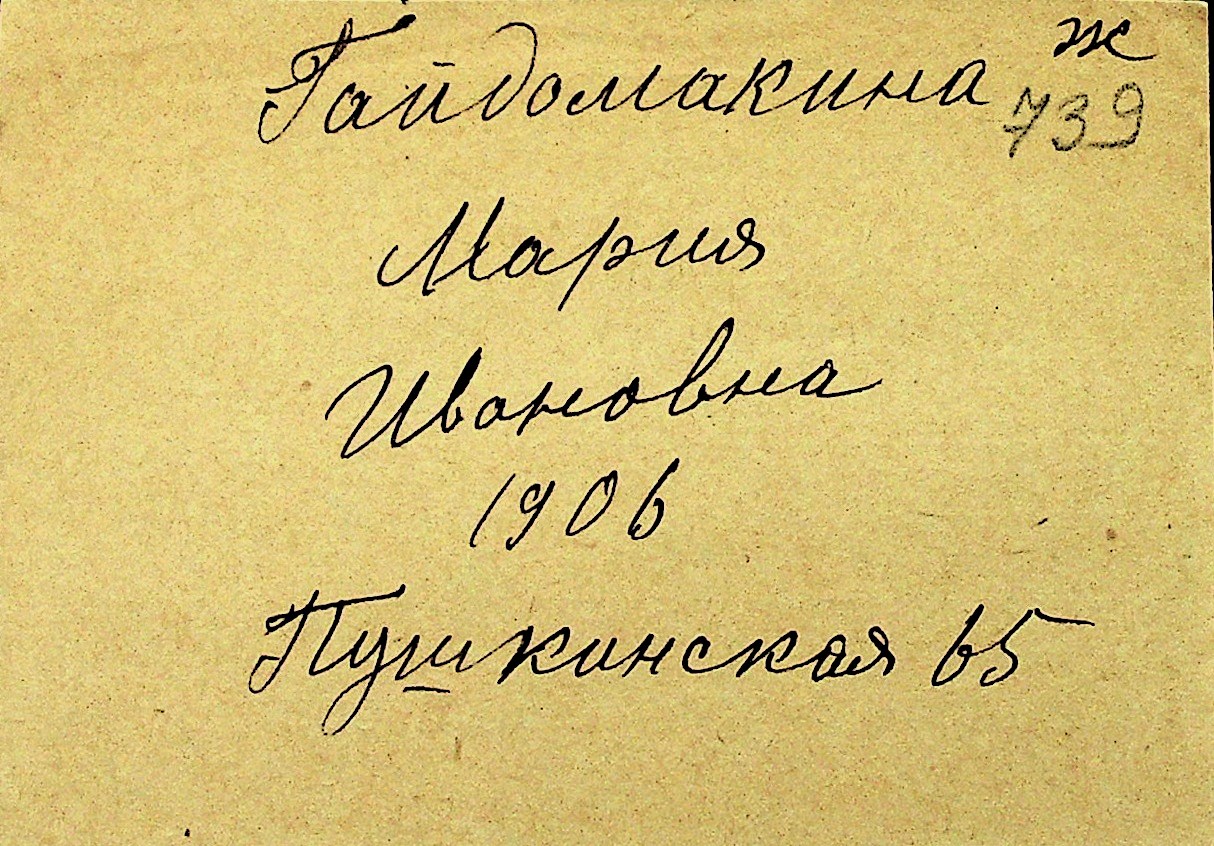 Гайдомакина ж
739
Мария
Ивановна
1906
Пушкинская 65